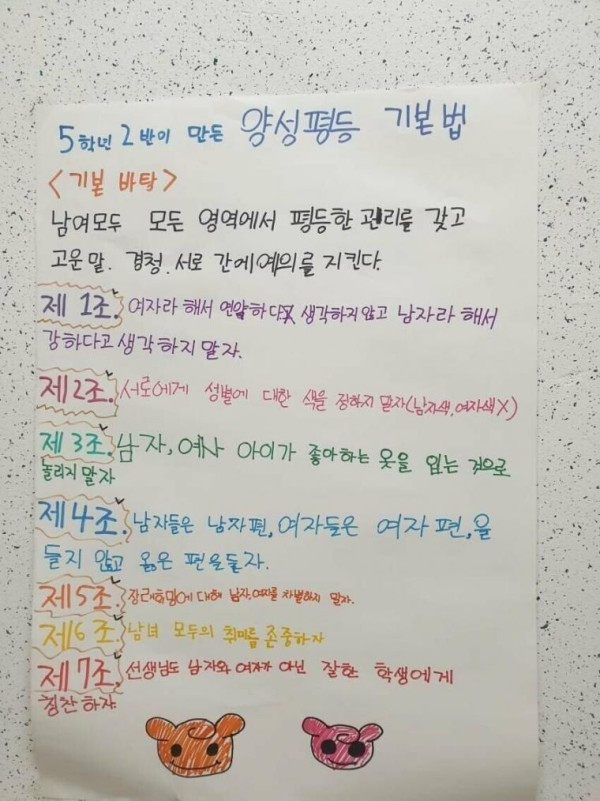 5학년 2반이 만든 양성평등 기본법
<기본 바탕>
남여모두 모든 영역에서 평등한 권리를 갖고
고운말. 경청. 서로 간에예의를 지킨다.
제 1조. 여자라 해서 연약하다 생각하지않고 남자라 해서
강하다고 생각하지 말자.
제2조. 서로에게 성별에 대한 색을 정하지 말자(남자색, 여자색X)
제 3조. 남자, 여자 아이가 좋아하는 옷을 입는 것으로
놀리지 말자
제4조. 남자들은 남자편, 여자들은 여자 편,을
들지 않고 옳은 편을들자.
제5조. 장래희망에 대해 남자,여자를 차별하지 말자.
제6조. 남녀 모두의 취미를 존중하자
제7조. 선생님도 남자와 여자가 아닌 잘한 학생에게
칭찬 하자